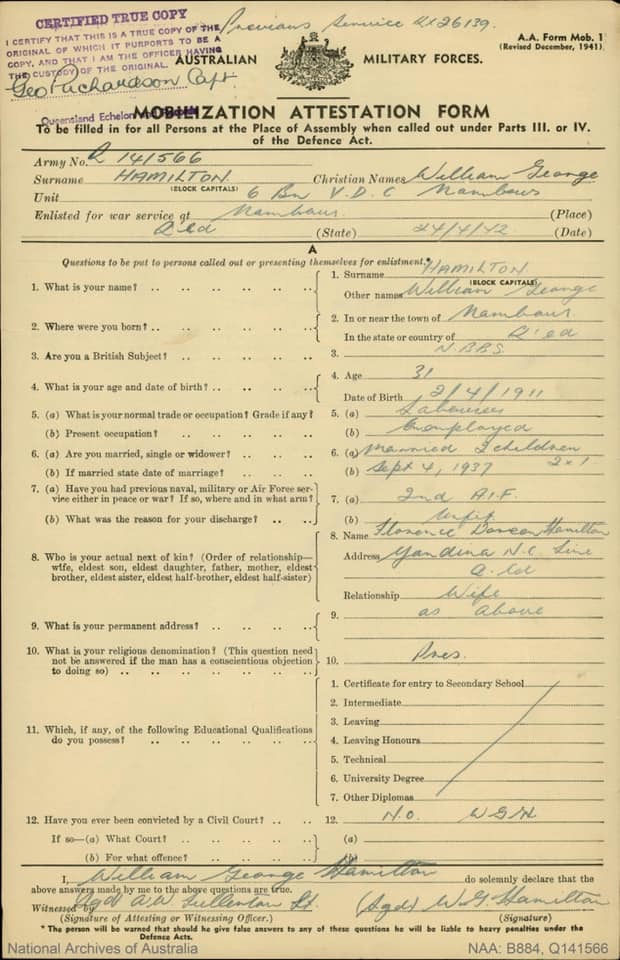 CERTIFIED TRUE COPY
Previous Service QX26139.
I CERTIFY THAT THIS IS A TRUE COPY OF THE
ORIGINAL OF WHICH IT PURPORTS TO BE A
COPY, AND THAT I AM THE OFFICER HAVING
THE CUSTODY OF THE ORIGINAL.
Geo Richardson Capt
Queensland Echelon
A.A. Form Mob. 1
(Revised December, 1941)
AUSTRALIAN MILITARY FORCES.
MOBILIZATION ATTESTATION FORM
To be filled in for all Persons at the Place of Assembly when called out under Parts III. or IV.
of the Defence Act.
Army No. Q 141566
Surname HAMILTON. Christian Names William George
(BLOCK CAPITALS)
Unit 6 Bn V.D.C Nambour
Enlisted for war service at Nambour. (Place)
Q'ld (State) 24/4/42 (Date)
A
Questions to be put to persons called out or presenting themselves for enlistment.*
1. What is your name? .. .. .. .. ..
1. Surname HAMILTON
(BLOCK CAPITALS)
Other names William George
2. Where were you born? .. .. .. .. ..
2. In or near the town of Nambour.
In the state or country of Q'ld
3. Are you a British Subject? .. .. .. ..
3. N.B.B.S.
4. What is your age and date of birth? .. .. ..
4. Age 31
Date of Birth 2/4/1911
5. (a) What is your normal trade or occupation? Grade if any?
5. (a) Labourer
(b) Present occupation? .. .. .. ..
(b) Unemployed
6. (a) Are you married, single or widower? .. ..
6. (a) Married 2 children
(b) If married state date of marriage? .. ..
(b) Sept 4, 1937 2x1
7. (a) Have you had previous naval, military or Air Force service either in peace or war? If so, where and in what arm?
7. (a) 2nd A.I.F.
(b) What was the reason for your discharge? .. ..
(b) Unfit
8. Who is your actual next of kin? (Order of relationship—
wife, eldest son, eldest daughter, father, mother, eldest
brother, eldest sister, eldest half-brother, eldest half-sister)
8. Name Florence Doreen Hamilton
Address Yandina N.C. Line
Q'ld
Relationship Wife
9. What is your permanent address? .. .. ..
9. as above
10. What is your religious denomination? (This question need
not be answered if the man has a conscientious objection
to doing so) .. .. .. .. .. ..
10. Pres.
11. Which, if any, of the following Educational Qualifications
do you possess? .. .. .. .. ..
1. Certificate for entry to Secondary School
2. Intermediate
3. Leaving
4. Leaving Honours
5. Technical
6. University Degree
7. Other Diplomas
12. Have you ever been convicted by a Civil Court? .. ..
12. No. WGH
If so—(a) What Court? .. .. .. ..
(a)
(b) For what offence? .. .. ..
(b)
I, William George Hamilton do solemnly declare that the
above answers made by me to the above questions are true.
Witnessed by (Sgd) A.W. Fullerton Lt. (Sgd) W.G. Hamilton
(Signature of Attesting or Witnessing Officer.) (Signature)
* The person will be warned that should he give false answers to any of these questions he will be liable to heavy penalties under the
Defence Acts.
National Archives of Australia
NAA: B884, Q141566